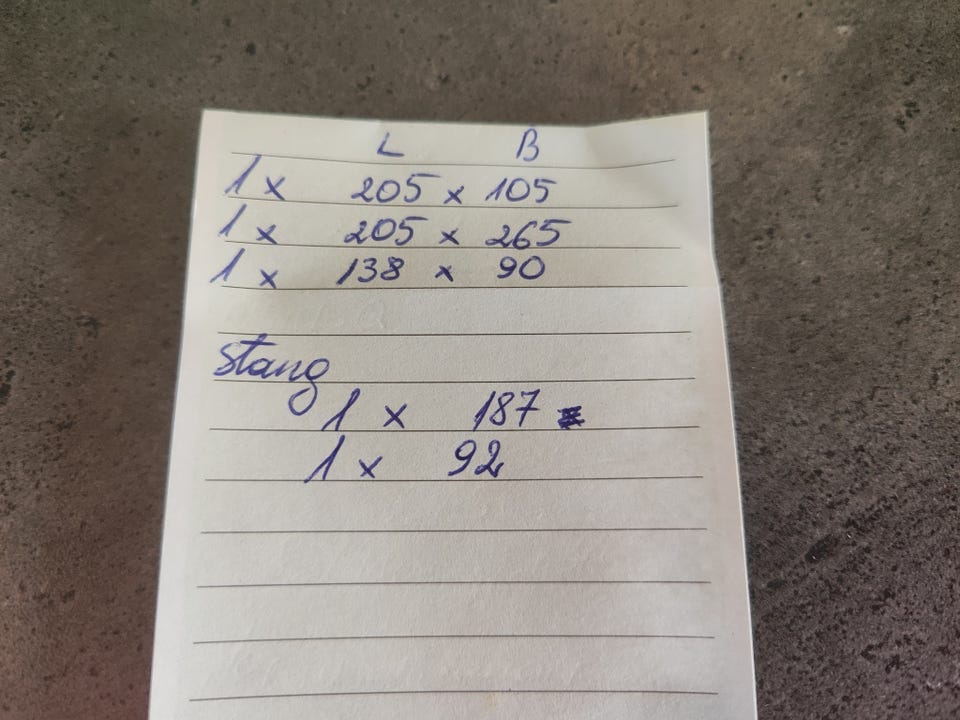 L B
1 x 205 x 105
1 x 205 x 265
1 x 138 x 90
stang
1 x 187
1 x 92